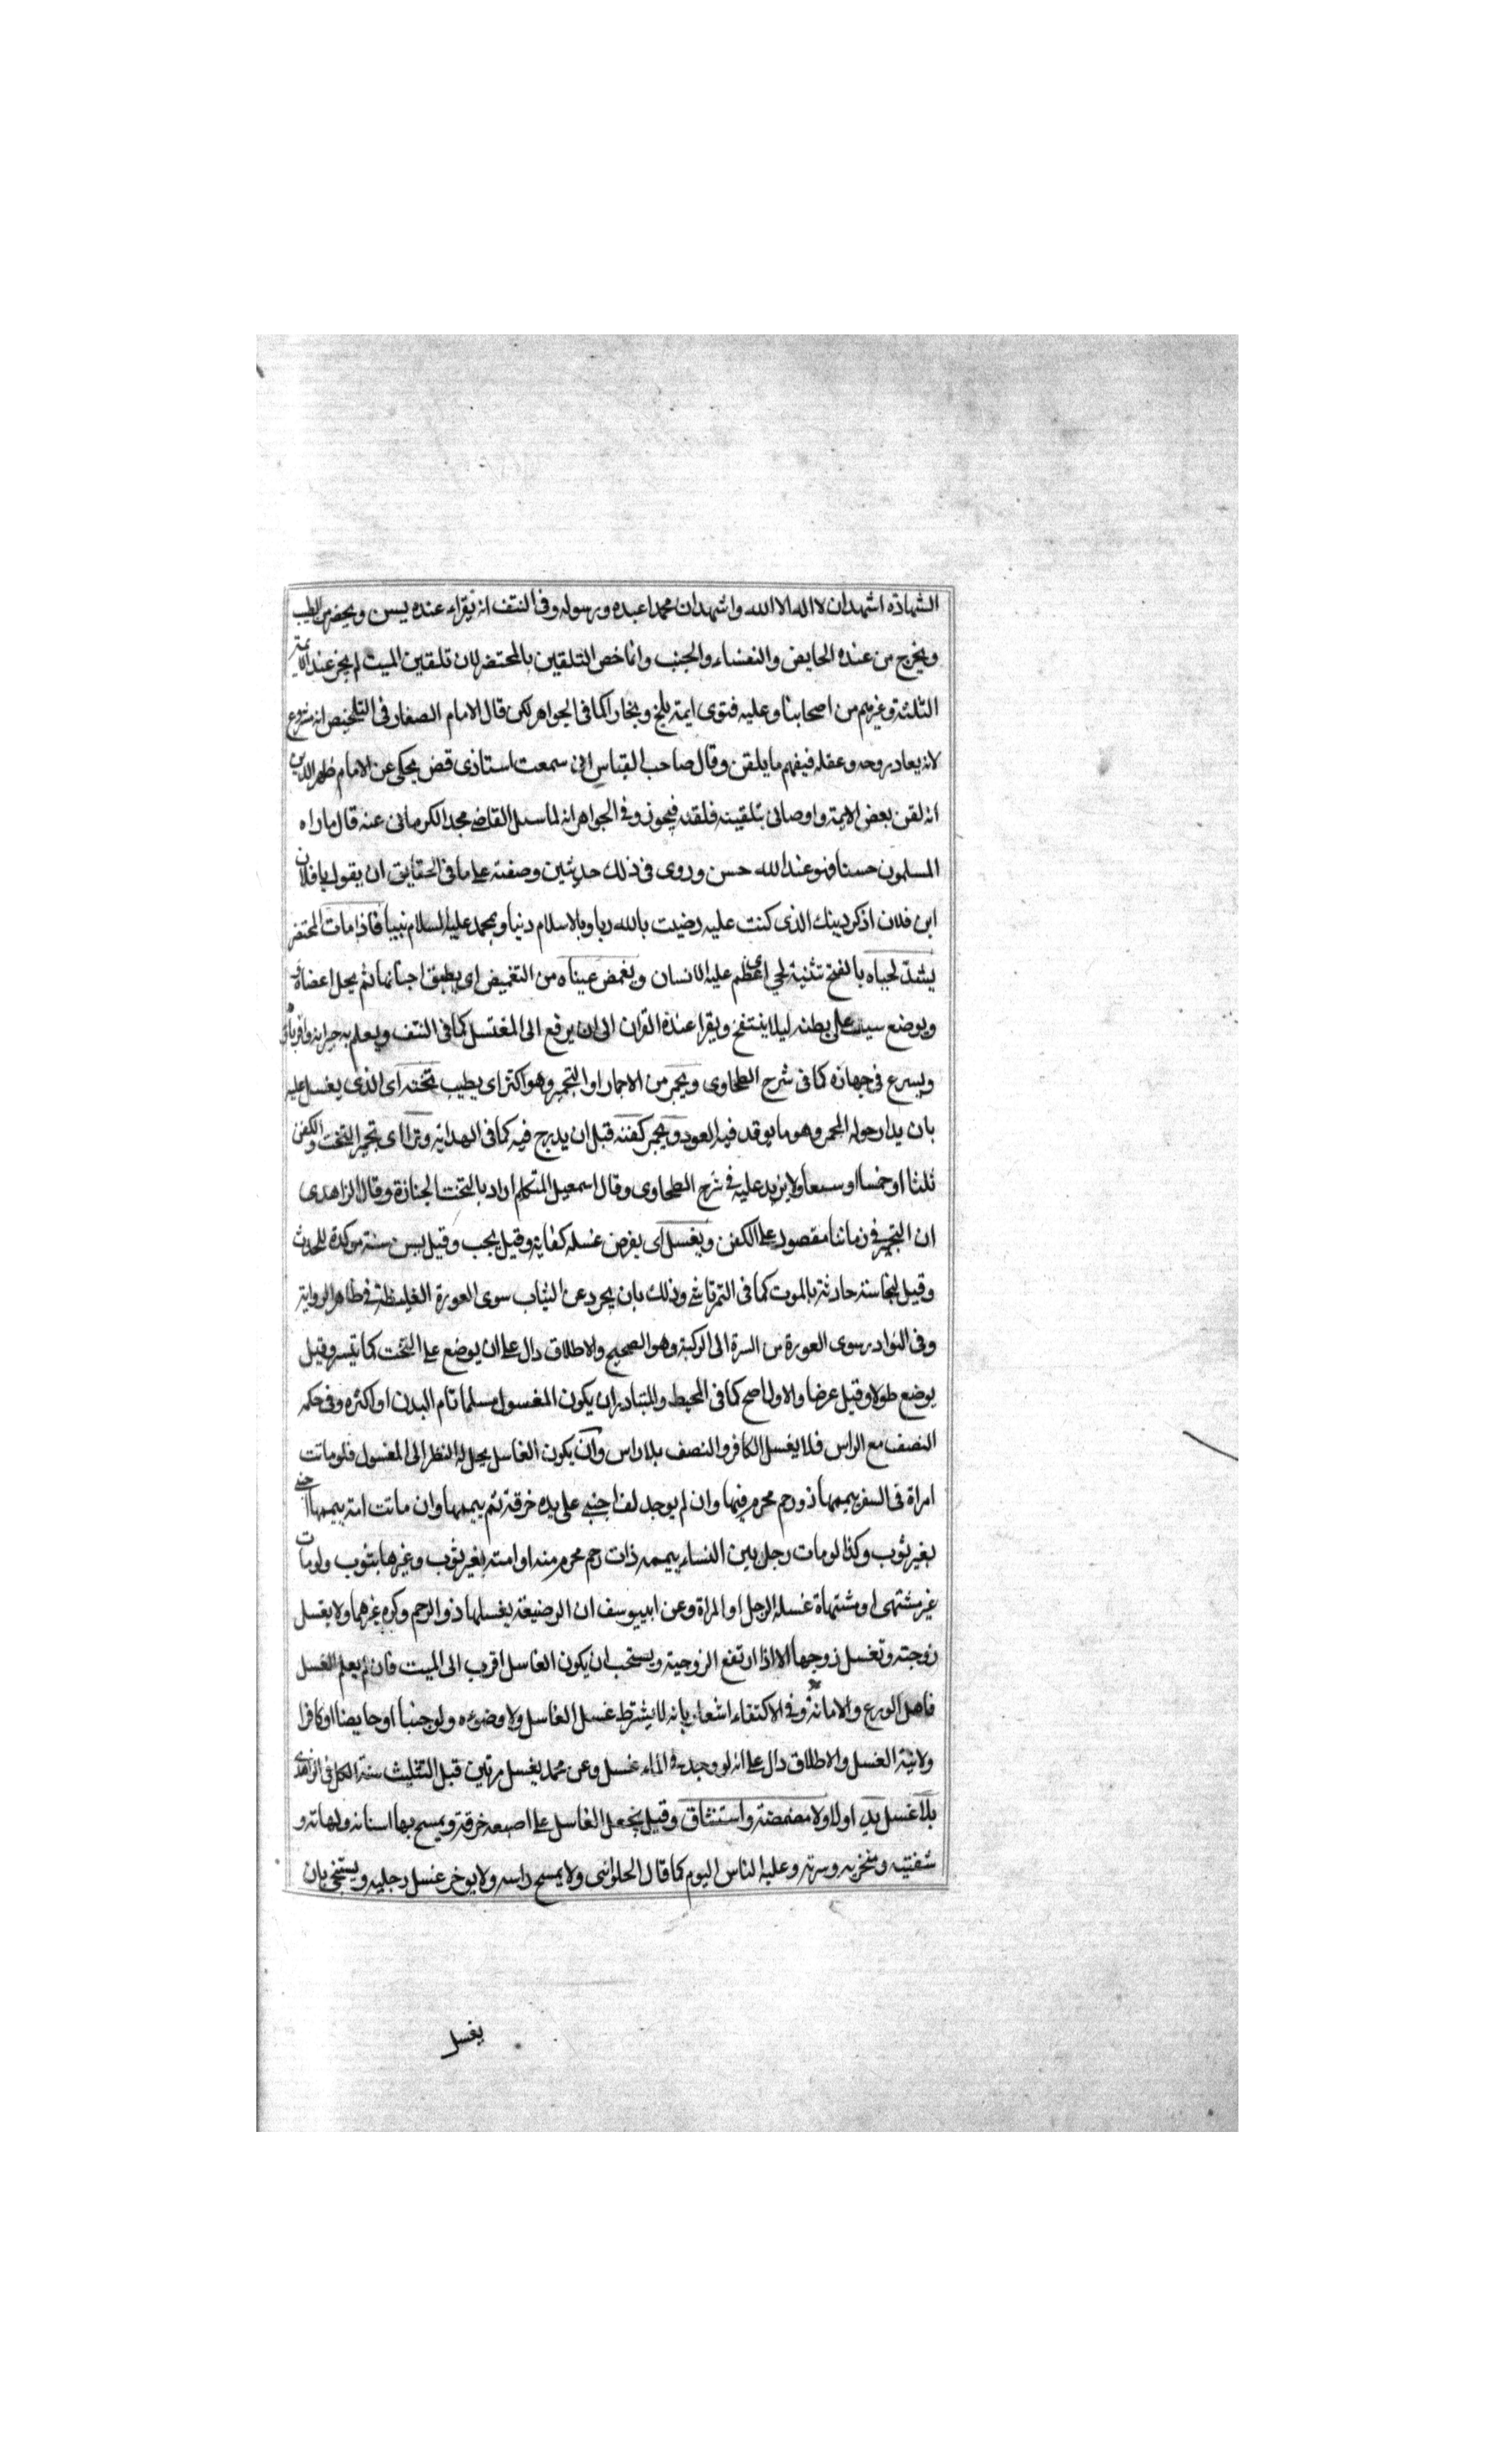 الشهادة اشهد ان لا اله الا الله واشهد ان محمدا عبده ورسوله وفى النتف انه يقراء عنده يسن ويحضر من الطيب
ويخرج من عنده الحايض والنفساء والجنب وانما خص التلقين بالمحتضر لان تلقين الميت لم يجز عند الائمة
الثلثة وغيرهم من اصحابنا وعليه فتوى ايمة بلخ وبخارا كما فى الجواهر لكن قال الامام الصفار فى التلخيص انه مشروع
لانه يعاد روحه وعقله فيفهم ما يلقن وقال صاحب القياس انى سمعت استاذى قض يحكى عن الامام ظهير الدين
انه لقن بعض الايمة واوصانى بتلقينه فلقنه فيجوز وفى الجواهر انه لما سئل القاضى مجد الكرمانى عنه قال ما راه
المسلمون حسنا فهو عند الله حسن وروى فى ذلك حديثين وصفته على ما فى الحقايق ان يقول يا فلان
ابن فلان اذكر دينك الذى كنت عليه رضيت بالله ربا وبالاسلام دينا وبمحمد عليه السلام نبيا فاذا مات المحتضر
يشد لحياه بالفتح تثنية لحى اى عظم عليه الانسان ويغمض عيناه من التغميض اى يطبق اجفانهما ثم يحل اعضاؤه
ويوضع سيف على بطنه ليلا ينتفخ ويقرا عنده القران الى ان يرفع الى المغتسل كما فى النتف ويعلم به جيرانه واقرباؤه
ويسرع فى جهازه كما فى شرح الطحاوى ويجمر من الاجمار او التجمير وهو اكثر اى يطيب تخته اى الذى يغسل عليه
بان يدار حوله المجمر وهو ما يوقد فيه العود ويجمر كفنه قبل ان يدرج فيه كما فى الهداية وترا اى تجمير التخت والكفن
ثلثا او خمسا او سبعا ولا يزيد عليه فى شرح الطحاوى وقال اسمعيل المتكلم اراد بالتخت الجنازة وقال الزاهدى
ان التجمير فى زماننا مقصود على الكفن ويغسل اى يفرض غسله كفاية وقيل يجب وقيل يسن سنة موكدة للحدث
وقيل لنجاسة حادثة بالموت كما فى التمرتاشى وذلك بان يجرد عن الثياب سوى العورة الغليظة فى ظاهر الرواية
وفى النوادر سوى العورة من السرة الى الركبة وهو الصحيح والاطلاق دال على ان يوضع على التخت كما تيسر وقيل
يوضع طولا وقيل عرضا والاول اصح كما فى المحيط والمتبادر ان يكون المغسول مسلما تام البدن او اكثره وفى حكمه
النصف مع الراس فلا يغسل الكافر والنصف بلا راس وان يكون الغاسل يحل له النظر الى المغسول فلو ماتت
امراة فى السفر ييممها ذو رحم محرم فيها وان لم يوجد لف اجنبى على يده خرقة ثم ييممها وان ماتت امة ييممها اجنبى
بغير ثوب وكذا لو مات رجل بين النساء ييممه ذات رحم محرم منه او امته بغير ثوب وغيرها بثوب ولو مات
غير مشتهى او مشتهاة غسله الرجل او المراة وعن ابى يوسف ان الرضيعة يغسلها ذو الرحم وكره غيرهما ولا يغسل
زوجته وتغسل زوجها الا اذا ارتفع الزوجية ويستحب ان يكون الغاسل اقرب الى الميت فان لم يعلم الغسل
فاهل الورع والامانة وفى الاكتفاء اشعار بانه لا يشترط غسل الغاسل ولا وضوءه ولو جنبا او حايضا او كافرا
ولا نية الغسل والاطلاق دال على انه لو وجد فى الماء غسل وعن محمد يغسل مرتين قبل التثليث سنة الكل فى الزاهدى
بلا غسل يد اولا ولا مضمضة واستنشاق وقيل يجعل الغاسل على اصبعه خرقة ويمسح بها اسنانه ولهاته و
شفتيه ومنخريه وسرته وعليه الناس اليوم كما قال الحلوانى ولا يمسح راسه ولا يوخر غسل رجليه ويستنجى بان
يغسل